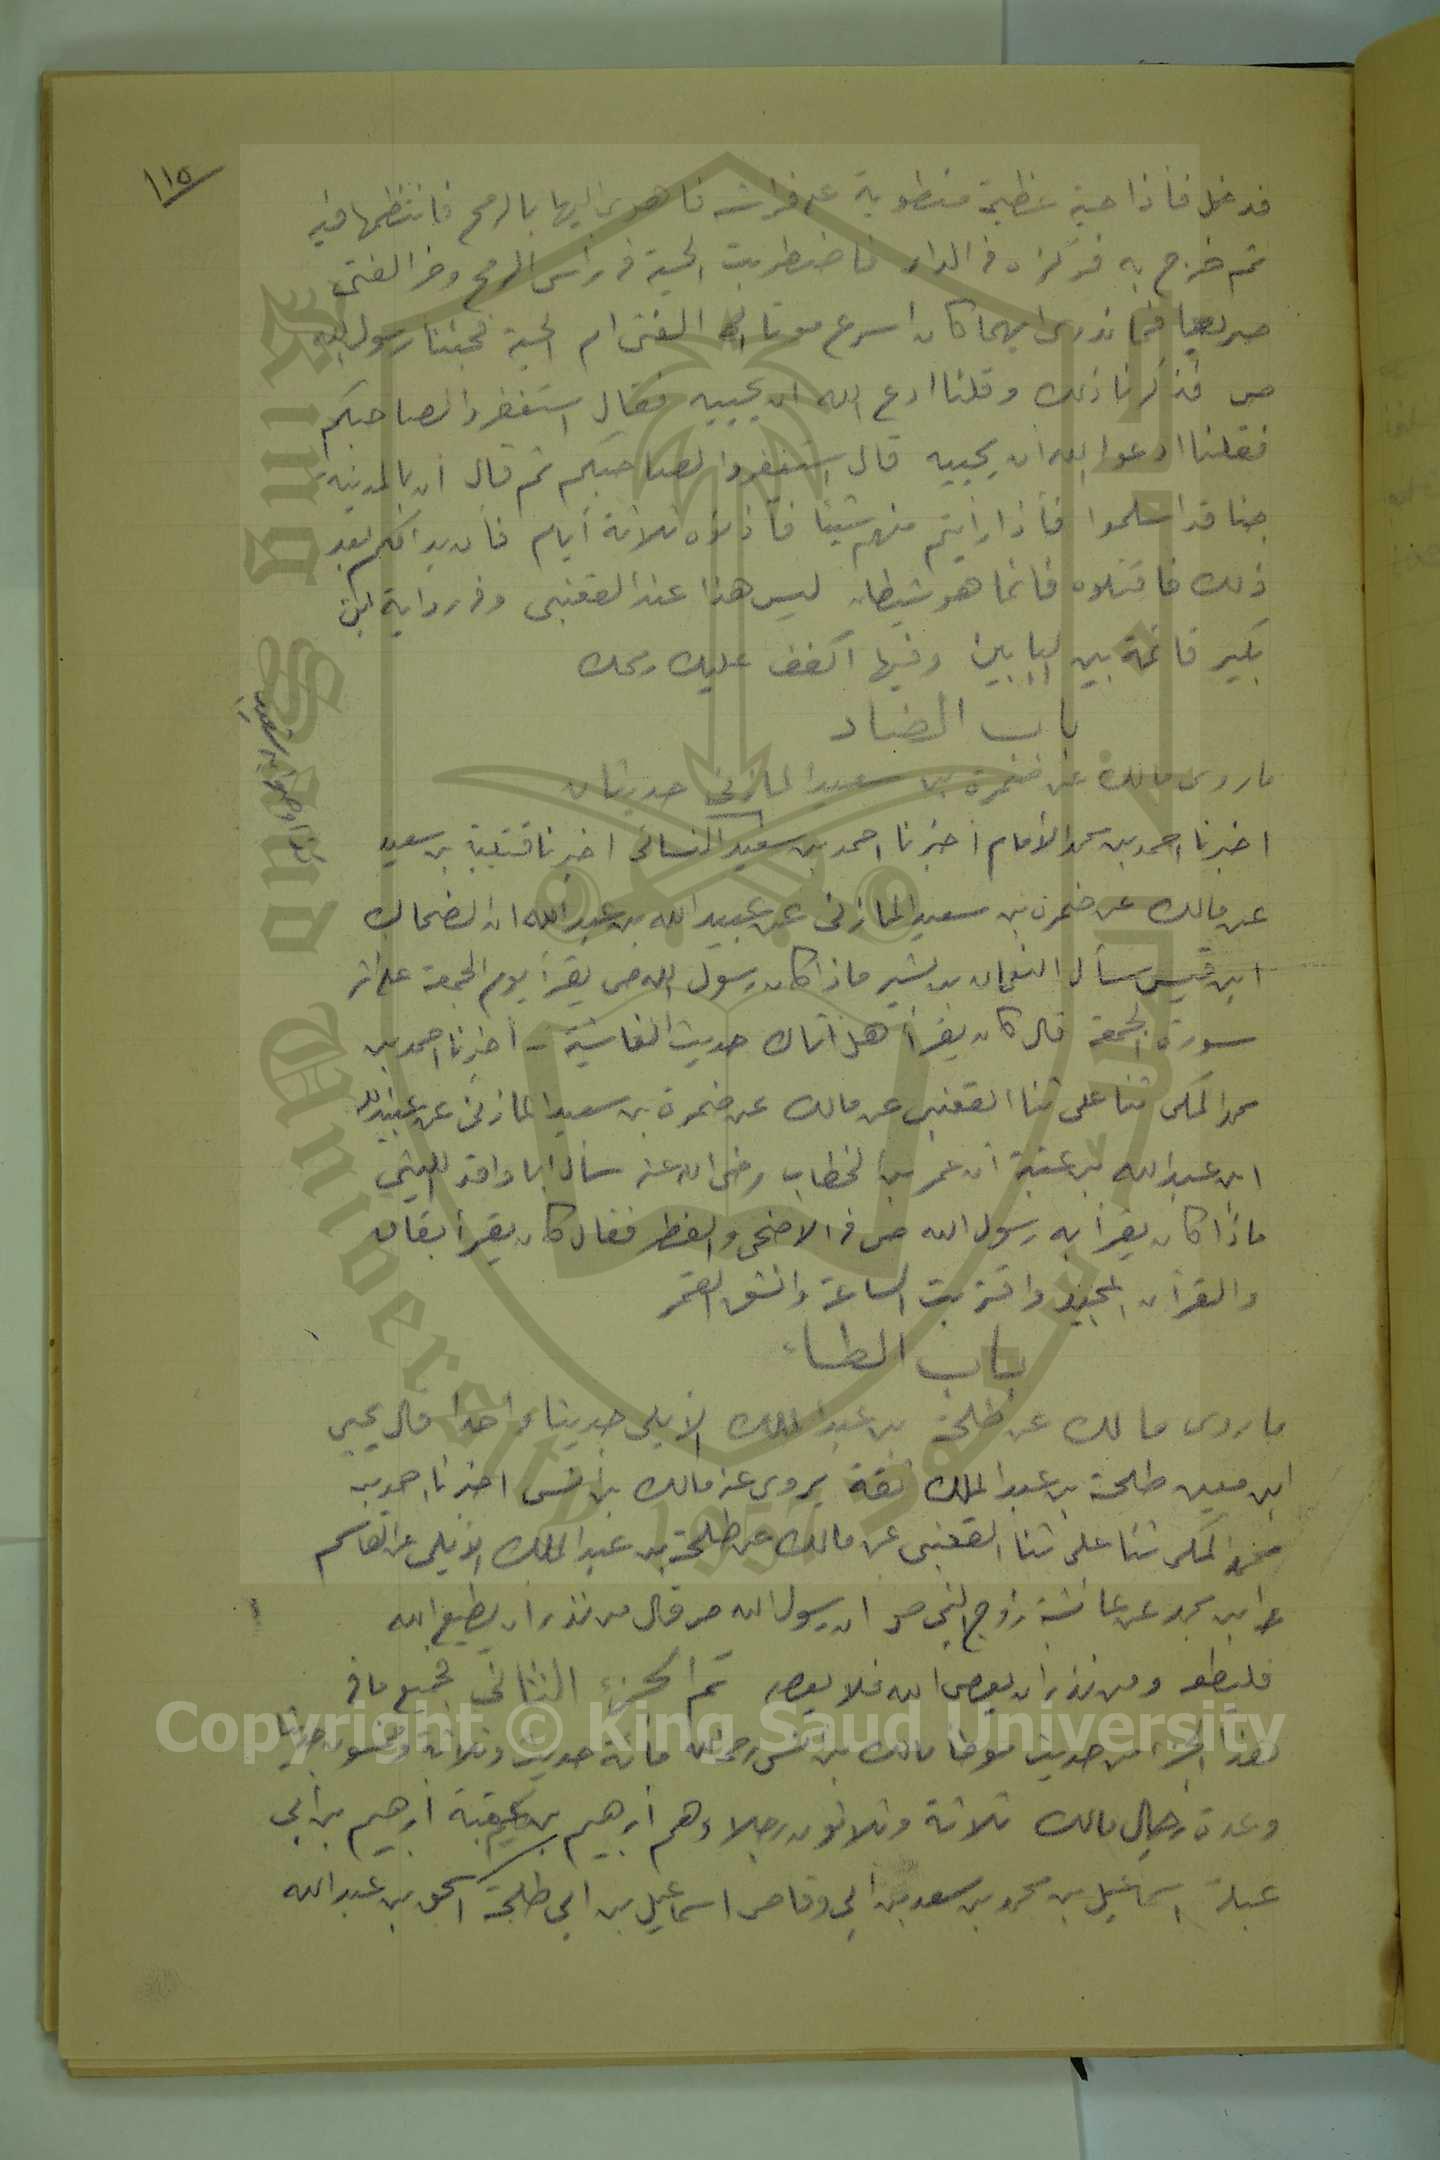 ١١٥
فدخل فأذا حية عظيمة منطوية على فراشه فاهوى اليها بالرمح فانتظمها فيه
ثم خرج به فركزه في الدار فاضطربت الحية في رأس الرمح وخر الفتى
صريعا فما ندرى ايهما كان اسرع موتا الفتى ام الحية فجئنا رسول الله
ص فذكرنا ذلك وقلنا ادع الله ان يحييه فقال استغفروا لصاحبكم
فقلنا ادعوا الله ان يحييه قال استغفروا لصاحبكم ثم قال ان بالمدينة
جنا قد اسلموا فأذا رأيتم منهم شيئا فأذنوه ثلاثة أيام فأن بدا لكم بعد
ذلك فاقتلوه فانما هو شيطان ليس هذا عند القعنبى وفي رواية ابن
بكير قائمة بين البابين وفيها اكفف عليك رمحك
باب الضاد
ما روى مالك عن ضمرة بن سعيد المازنى حديثان
اخبرنا احمد بن محمد الأمام أخبرنا احمد بن النسائى اخبرنا قتيبة بن سعيد
عن مالك عن ضمرة بن سعيد المازنى عن عبيد الله بن عبد الله ان الضحاك
ابن قيس سأل النعمان بن بشير ماذا كان رسول الله ص يقرأ يوم الجمعة على اثر
سورة الجمعة قال كان يقرأ هل اتاك حديث الغاشية - أخبرنا احمد بن
محمد المكى ثنا على ثنا القعنبى عن مالك عن ضمرة بن سعيد المازنى عن عبيد الله
ابن عبد الله بن عتبة أن عمر بن الخطاب رضى الله عنه سأل أبا واقد الليثى
ماذا كان يقرأ به رسول الله ص في الاضحى والفطر فقال كان يقرأ بقاف
والقرآن المجيد واقتربت الساعة وانشق القمر
باب الطاء
ما روى مالك عن طلحة بن عبد الملك الأيلى حديثا واحدا قال يحيى
ابن معين طلحة بن عبد الملك ثقة يروى عنه مالك بن أنس اخبرنا احمد بن
محمد المكى ثنا على ثنا القعنبى عن مالك عن طلحة بن عبد الملك الأيلى عن القاسم
ابن محمد عن عائشة زوج النبى ص ان رسول الله ص قال من نذر أن يطيع الله
فليطعه ومن نذر أن يعصى الله فلا يعصه تم الجزء الثانى فجميع ما في
هذا الجزء من حديث موطأ مالك بن أنس رحمه الله مائة حديث وثلاثة وخمسون حديثا
وعدة رجال مالك ثلاثة وثلاثون رجلا وهم أبرهيم بن عقبة أبرهيم بن أبى
عبلة اسماعيل بن محمد بن سعد بن أبى وقاص اسماعيل بن أبى طلحة اسحق بن عبد الله
Copyright © King Saud University
King Saud University
1957